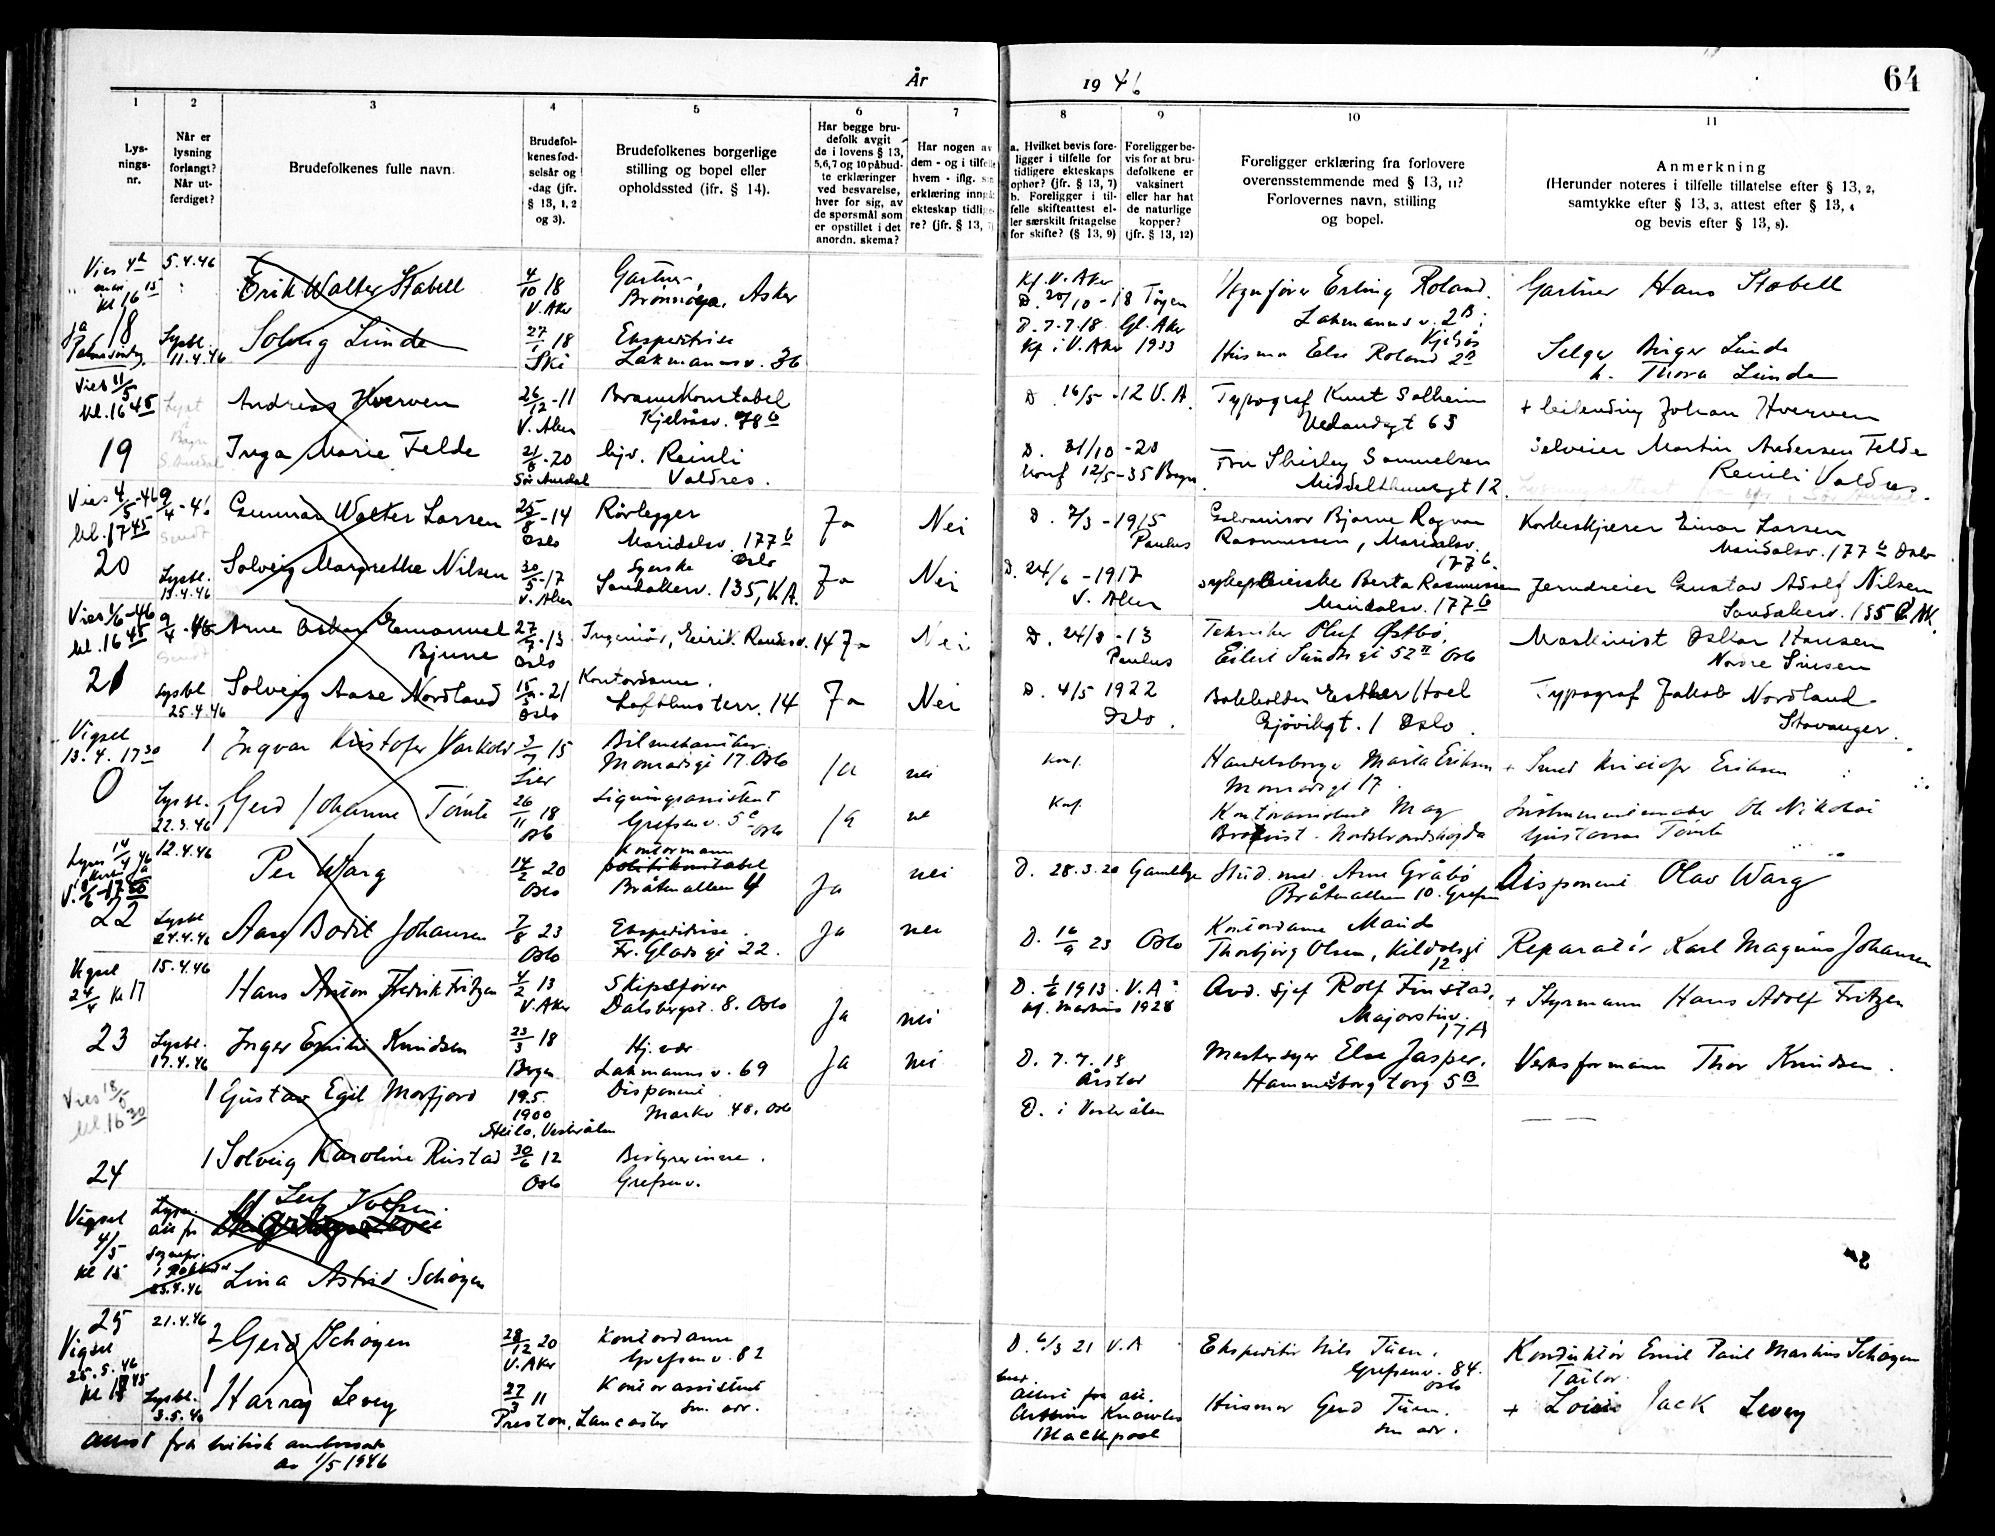 År 1946
64
1
2
3
4
5
6
7
8
9
10
11
Lys-
nings-
nr.
Når er
lysning
forlangt?
Når ut-
ferdiget?
Brudefolkenes fulle navn.
Brudefol-
kenes fød-
selsår og
-dag (jfr.
§ 13, 1, 2
og 3).
Brudefolkenes borgerlige
stilling og bopel eller
opholdssted (jfr. § 14).
Har begge bru-
defolk avgit
de i lovens § 13,
5, 6, 7 og 10 påbud-
te erklæringer
ved besvarelse,
hver for sig, av
de spørsmål som
er opstillet i det
anordn. skema?
Har nogen av
dem - og i tilfelle
hvem - iflg. sin
erklæring inngå
ekteskap tidlige
re? (jfr. § 13, 7)
a. Hvilket bevis fore-
ligger i tilfelle for
tidligere ekteskaps
ophør? (jfr. § 13, 7)
b. Foreligger i til-
felle skifteattest el-
ler særskilt fritagelse
for skifte? (§ 13, 9)
Foreligger be-
vis for at bru-
defolkene er
vaksinert
eller har hat
de naturlige
kopper?
(jfr. § 13, 12)
Foreligger erklæring fra forlovere
overensstemmende med § 13, 11?
Forlovernes navn, stilling
og bopel.
Anmerkning
(Herunder noteres i tilfelle tillatelse efter § 13, 2,
samtykke efter § 13, 3, attest efter § 13, 4
og bevis efter § 13, 8).
5.4.46
Erik Walter Stabell
4/10 18
V. Aker
Gartner,
Brønnøya, Asker
Kf. V. Aker
D. 20/10 - 18 Tøyen
Vognfører Erling Roland.
Lakmannsv. 2B
Kjelsås
Gartner Hans Stabell
kl 16 15
18
Lysbl.
11.4.46
Solveig Lunde
27/1 18
Ski
Ekspeditrise
Lakmannsv. 36
D. 7.7.18. Gl. Aker
Kf i V. Aker 1933
Husmor Else Roland 2B
Selger Birger Lunde
h. Thora Lunde
Vies 11/5
kl. 16 45
19
Andreas Hverven
26/12 - 11
V. Aker
Brannkonstabel
Kjelsåsv. 78 b
D. 16/5 - 12 V. A.
Typograf Knut Solheim
63
+ leilending Johan Hverven
Inga Marie Felde
21/8 - 20
Sør Aurdal
hjv. Reinli
Valdres.
D. 31/10 - 20
Konf 12/5 - 35 Bagn
Fru Shirley Samuelsen
Middelthunsgt 12.
selveier Martin Andersen Felde
Reinli Valdres.
Vies 4/5 - 46
kl. 17 45
20
9/4 - 46
Sendt
Gunnar Walter Larsen
25/8 - 14
Oslo
Rørlegger
Maridalsv. 177 b
Oslo
Ja
Nei
D. 7/3 - 1915
Paulus
Galvanisør Bjarne Ragnar
Rasmussen, Maridalsv.
177 b.
Korkeskjærer Einar Larsen
Maridalsv. 177 b Oslo
Lysbl.
Solveig Margrethe Nilsen
30/5 - 17
V. Aker
Syerske
Sandakerv. 135, V. A.
Ja
Nei
D. 24/6 - 1917
V. Aker
Berta Rasmussen
Maridalsv. 177 b
Jerndreier Gustav Adolf Nilsen
Sandakerv. 135
Vies 1/6 - 46
kl. 16 45
21
Sendt
Arne Oskar Emanuel
Bjune
13
Oslo
Ingeniør, Eirik Raudesv. 14
Ja
Nei
D. 24/8 - 13
Paulus
Tekniker Oluf Østbø,
Eilert Sundts gt 52 II Oslo
Maskinist Oskar Hansen
Nordre Sinsen
Lysbl
25.4.46
Solveig Aase Nordland
21
Oslo
Kontordame.
Lofthus terr. 14
Ja
Nei
D. 4/5 1922
Oslo.
Bokholder Esther Hoel
Gjøvikgt. 1 Oslo.
Typograf Jakob Nordland
Stavanger.
Vigsel
13.4. 17 30
0
1 Ingvar Kristofer Varkold
15
Lier
Bilmekaniker.
Monradsgt 17. Oslo
Ja
nei
Konf.
Handelsborger Marta Eriksen
Monradsgt 17
+ Smed Kristofer Eriksen
Lysbl.
22.3.46
1 Gerd Johanne Tømte
26/11 18
Oslo
Ligningsassistent
Grefsenv. 5 c Oslo
Ja
Konf.
Kontorassistent May
Brokvist. Nordstrandshøgda
Instrumentmaker Ole Nikolai
Gustavsen Tømte
22
12.4.46
Per Warg
14/2 20
Oslo
Kontormann
politikonstabel
Bråtenalleen 4
Ja
nei
D. 28.3.20 Gamlebye
Stud. med. Arne Gråbø
Bråtenalleen 10. Grefsen
Disponent Olav Warg
Lysbl
24.4.46
Aase Bodil Johansen
7/8 23
Oslo
Ekspeditrise.
Fr. Glads gt 22.
Ja
nei
D. 16/9 23 Oslo
Kontordame Maude
Thorbjørg Olsen, Kildalsgt
12
Reparatør Karl Magnus Johansen
Vigsel
24/4 kl 17
23
15.4.46
Hans Anton Fredrik Fritzen
4/2 13
V. Aker
Skipsfører
Dalsbergst. 8. Oslo
Ja
nei
D. 1/6 1913. V. A.
kf. Markus 1928
Avd. sjef Rolf Finstad,
Majorstuv.
17A
+ Styrmann Hans Adolf Fritzen
Lysbl.
17.4.46
Inger Emilie Knudsen
23/3 18
Bergen
Hj. vær
Lakmannsv. 69
Ja
nei
D. 7.7.18
Årstad
Else Jasper.
Hammersborg torg 5B
Verksformann Thor Knudsen.
kl. 16 30
24
1 Gustav Egil Morfjord
19.5.
1900
Steilo, Vesterålen
Disponent
Markv 48. Oslo
D. i Vesterålen
1 Solveig Karoline Rustad
30/6 12
Oslo
Bestyrerinne.
Grefsenv.
Vigsel
4/5
kl 15
25
Lysn.
att fr
sognepr.
23.4.46
Leif
Lina Astrid Schøyen
Vigsel
25.5.46
21.4.46
2 Gerd Schøyen
28/12 20
V. Aker
Kontordame
Grefsenv. 82
D. 6/3 21 V. A
Ekspeditør Nils Tuen.
Grefsenv. 84.
Oslo
Konduktør Emil Paul Martins Schøyen
Lysbl.
3.5.46
1 Harray Levey
27/3 11
Preston, Lancaster
Kontorassistent
sm. adr.
Attest fra att.
Arthur Knowles
Blackpool
Husmor Gerd Tuen.
sm adr.
Tailor.
+ Louis Jack Levey
attest fra britisk ambassade
av 1/5 1946